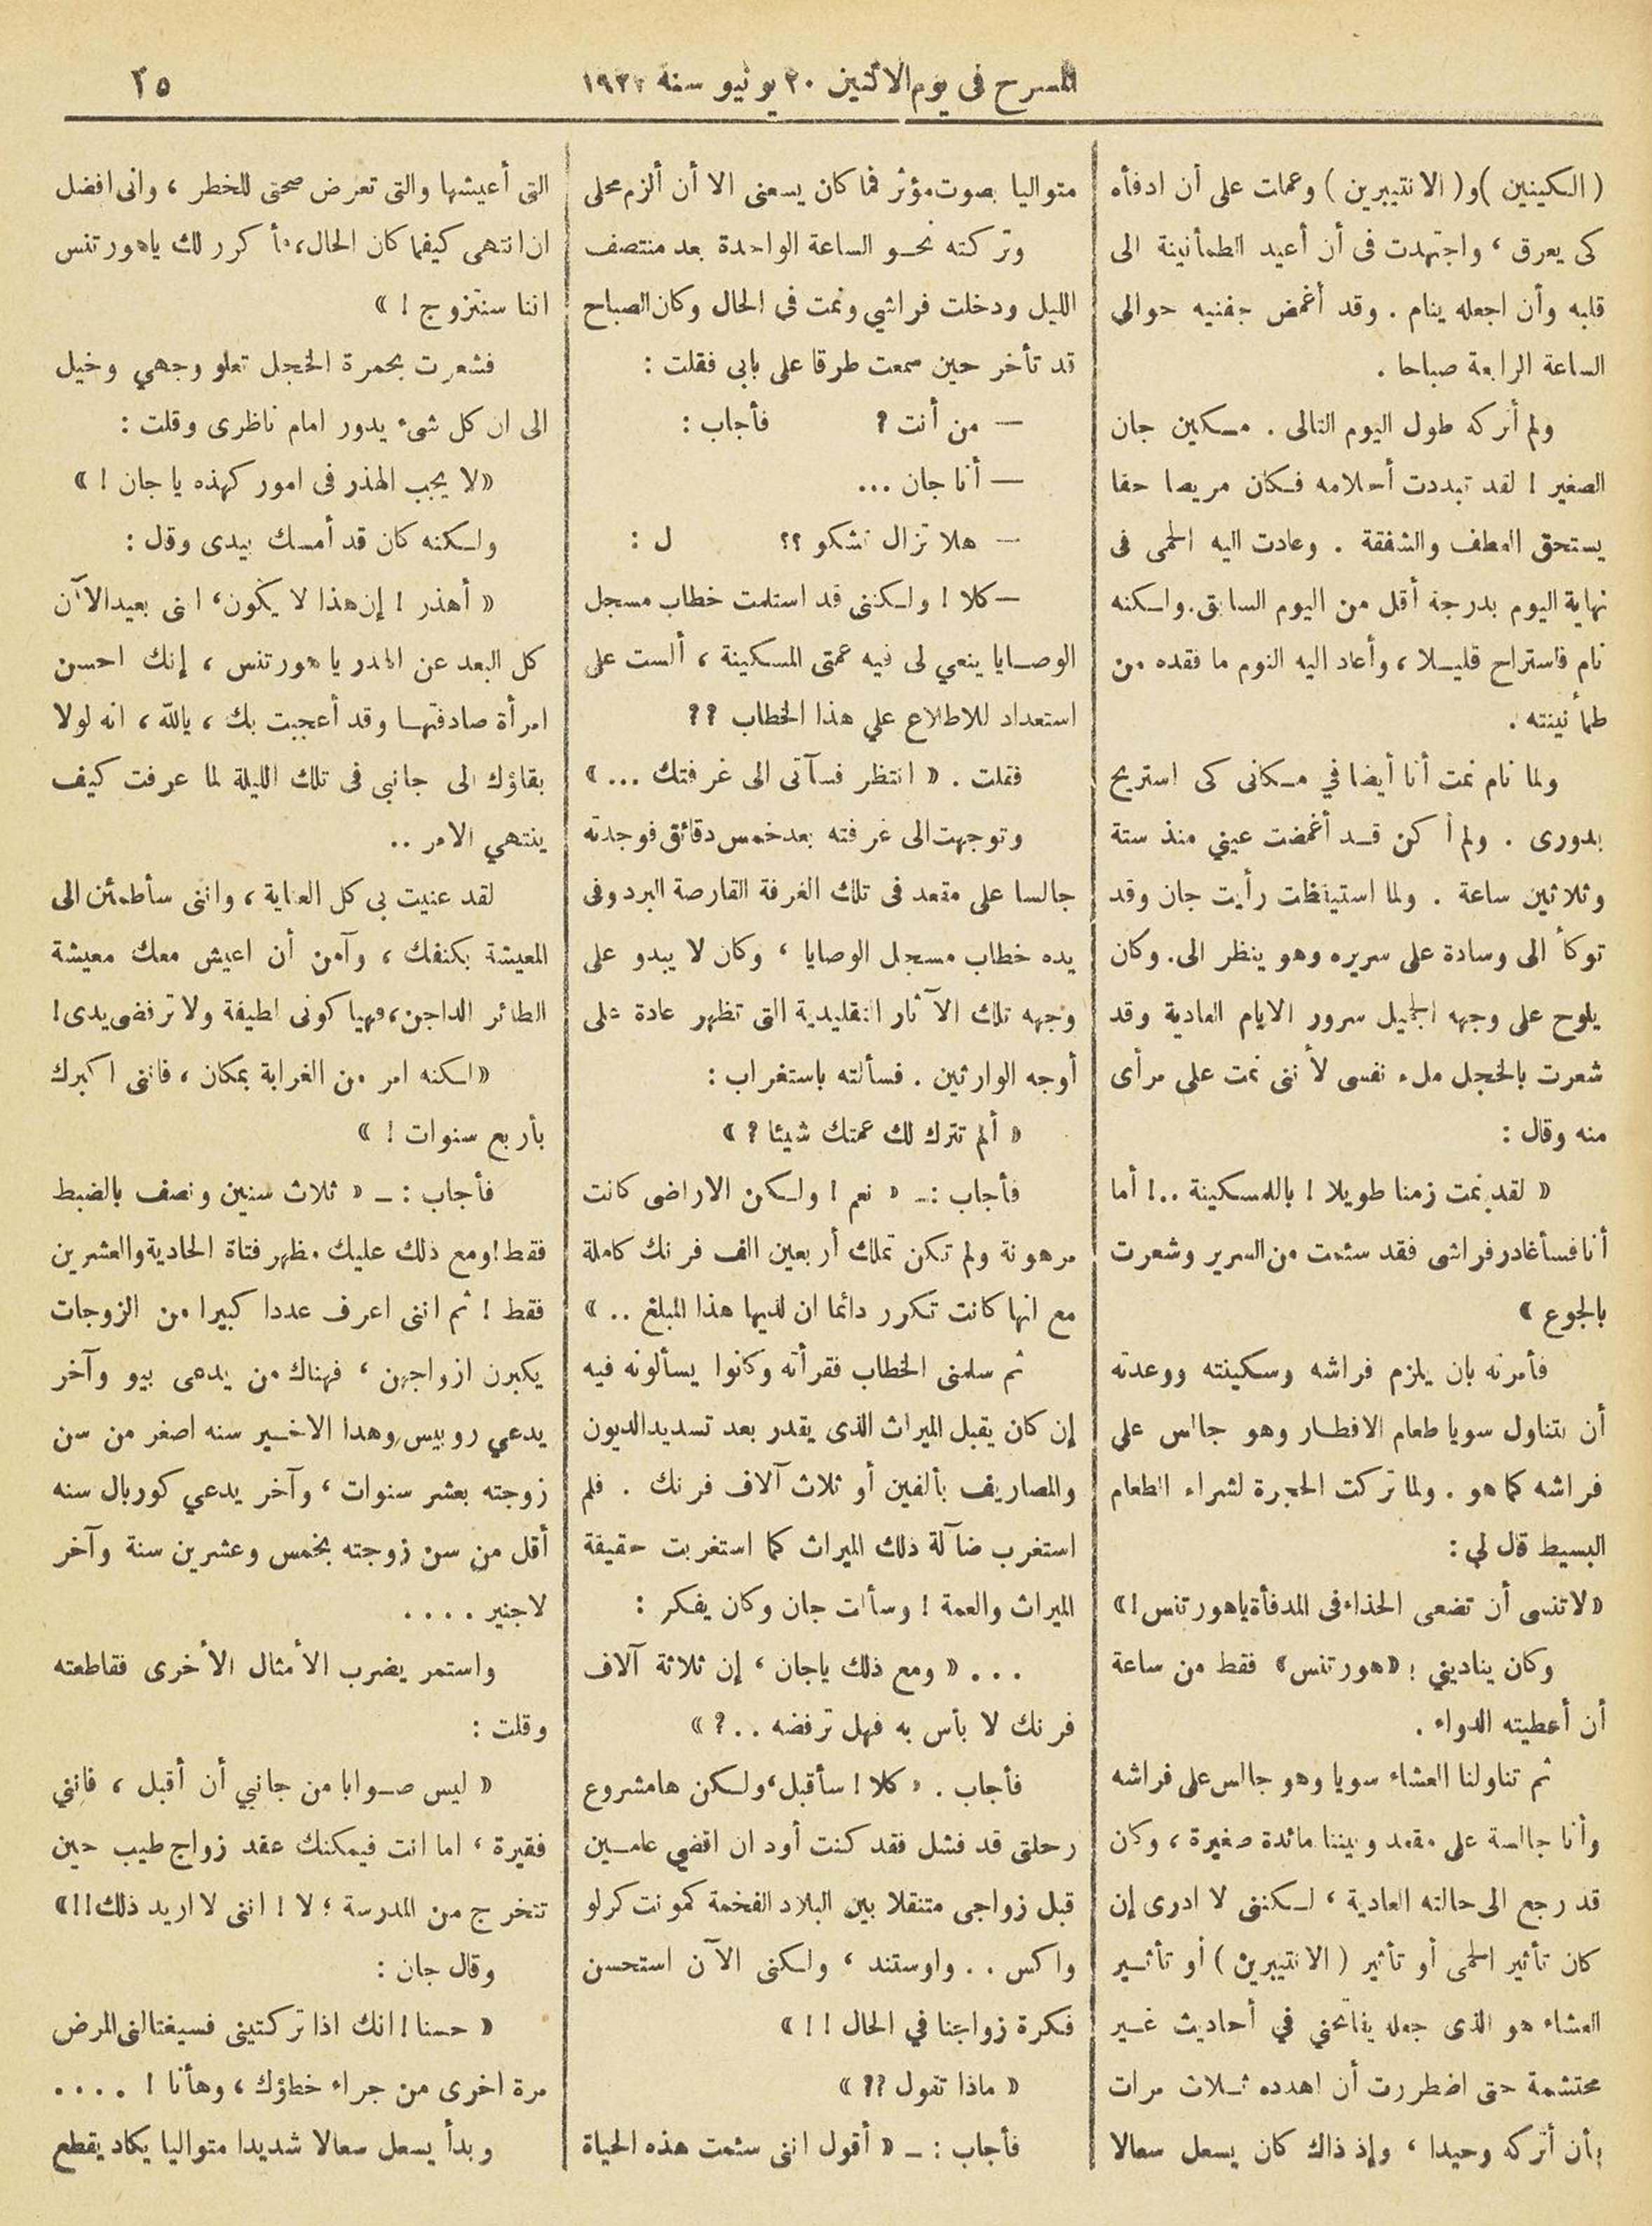 المسرح في يوم الاثنين ٢٠ يونيو سنة
٢٥
( السكينين ) و( الانتيبرين ) وعملت على أن ادفأه
كى يعرق ، واجتهدت فى أن أعيد الطمأنينة الى
قلبه وأن اجعله ينام . وقد أغمض جفنيه حوالي
الساعة الرابعة صباحا .
ولم أتركه طول اليوم التالى . مسكين جان
الصغير ! لقد تبددت أحلامه فكان مريضا حقا
يستحق العطف والشفقة . وعادت اليه الحمى فى
نهاية اليوم بدرجة أقل من اليوم السابق. ولكنه
نام فاستراح قليلا ، وأعاد اليه النوم ما فقده من
طمأنينته .
ولما نام نمت أنا أيضا في مكانى كى استريح
بدورى . ولم أكن قد أغمضت عيني منذ ستة
وثلاثين ساعة . ولما استيقظت رأيت جان وقد
توكأ الى وسادة على سريره وهو ينظر الى. وكان
يلوح على وجهه الجميل سرور الايام العادية وقد
شعرت بالخجل ملء نفسى لأننى نمت على مرأى
منه وقال :
« لقد نمت زمنا طويلا ! باللمسكينة ..! أما
أنا فسأغادر فراشى فقد سئمت من السرير وشعرت
بالجوع »
فأمرته بان يلزم فراشه وسكينته ووعدته
أن نتناول سويا طعام الافطار وهو جالس على
فراشه كما هو . ولما تركت الحجرة لشراء الطعام
البسيط قال لي :
« لا تنسى أن تضعى الحذاء فى المدفأة ياهورتنس ! »
وكان يناديني : «هورتنس» فقط من ساعة
أن أعطيته الدواء .
ثم تناولنا العشاء سويا وهو جالس على فراشه
وأنا جالسة على مقعد وبيننا مائدة صغيرة ، وكان
قد رجع الى حالته العادية ، لكننى لا ادرى إن
كان تأثير الحمى أو تأثير ( الانتيبرين ) أو تأثير
العشاء هو الذى جعله يفاتحني في أحاديث غير
محتشمة حتى اضطررت أن اهدده ثلاث مرات
بأن أتركه وحيدا ، وإذ ذاك كان يسعل سعالا
متواليا بصوت مؤثر فما كان يسعنى الا أن ألزم محلى
وتركته نحو الساعة الواحدة بعد منتصف
الليل ودخلت فراشي ونمت في الحال وكان الصباح
قد تأخر حين سمعت طرقا على بابى فقلت :
— من أنت ? فأجاب :
— أنا جان ...
— هلا تزال تشكو ؟؟ ل :
— كلا ! ولكننى قد استلمت خطاب مسجل
الوصايا ينعي لى فيه عمتى المسكينة ، ألست على
استعداد للاطلاع علي هذا الخطاب ??
فقلت . « انتظر فسآتى الى غرفتك ... »
وتوجهت الى غرفته بعد خمس دقائق فوجدته
جالسا على مقعد فى تلك الغرفة القارصة البرد وفى
يده خطاب مسجل الوصايا ، وكان لا يبدو على
وجهه تلك الآثار التقليدية التى تظهر عادة على
أوجه الوارثين . فسألته باستغراب :
« ألم تترك لك عمتك شيئا ? »
فأجاب :ـ « نعم ! ولكن الاراضى كانت
مرهونة ولم تكن تملك أربعين الف فرنك كاملة
مع انها كانت تكرر دائما ان لديها هذا المبلغ .. »
ثم سلمنى الخطاب فقرأته وكانوا يسألونه فيه
إن كان يقبل الميراث الذى يقدر بعد تسديد الديون
والمصاريف بألفين أو ثلاث آلاف فرنك . فلم
استغرب ضآلة ذلك الميراث كما استغربت حقيقة
الميراث والعمة ! وسألت جان وكان يفكر :
... « ومع ذلك ياجان ، إن ثلاثة آلاف
فرنك لا بأس به فهل ترفضه ..? »
فأجاب . « كلا ! سأقبل، ولكن هامشروع
رحلتى قد فشل فقد كنت أود ان اقضي عامين
قبل زواجى متنقلا بين البلاد الفخمة كمونت كرلو
واكس .. واوستند ، ولكنى الآن استحسن
فكرة زواجنا في الحال !! »
« ماذا تقول ?? »
فأجاب : ـ « أقول اننى سئمت هذه الحياة
التى أعيشها والتى تعرض صحتى للخطر ، وانى افضل
ان انتهى كيفما كان الحال، أكرر لك ياهورتنس
اننا سنتزوج ! »
فشعرت بحمرة الخجل تعلو وجهي وخيل
الى ان كل شىء يدور امام ناظرى وقلت :
« لا يجب الهذر فى امور كهذه يا جان ! »
ولكنه كان قد أمسك بيدى وقال :
« أهذر ! إن هذا لا يكون، انى بعيد الآن
كل البعد عن الهذر يا هورتنس ، إنك احسن
امرأة صادفتها وقد أعجبت بك ، يالله ، انه لولا
بقاؤك الى جانبى فى تلك الليلة لما عرفت كيف
ينتهي الامر ..
لقد عنيت بى كل العناية ، واننى سأطمئن الى
المعيشة بكنفك ، وآمن أن اعيش معك معيشة
الطائر الداجن، فهيا كونى لطيفة ولا ترفضى يدى !
« لكنه امر من الغرابة بمكان ، فاننى اكبرك
بأربع سنوات ! »
فأجاب : ـ « ثلاث سنين ونصف بالضبط
فقط ! ومع ذلك عليك مظهر فتاة الحادية والعشرين
فقط ! ثم اننى اعرف عددا كبيرا من الزوجات
يكبرن ازواجهن ، فهناك من يدعى بيو وآخر
يدعي روبيس, وهذا الاخير سنه اصغر من سن
زوجته بعشر سنوات ، وآخر يدعي كوربال سنه
أقل من سن زوجته بخمس وعشرين سنة وآخر
لاجنير ....
واستمر يضرب الأمثال الأخرى فقاطعته
وقلت :
« ليس صوابا من جانبي أن أقبل ، فانني
فقيرة ، اما انت فيمكنك عقد زواج طيب حين
تتخرج من المدرسة ؛ لا ! اننى لا اريد ذلك !! »
وقال جان :
« حسنا ! انك اذا تركتينى فسيغتالنى المرض
مرة اخرى من جراء خطؤك ، وهأنا ! ....
وبدأ يسعل سعالا شديدا متواليا يكاد يقطع